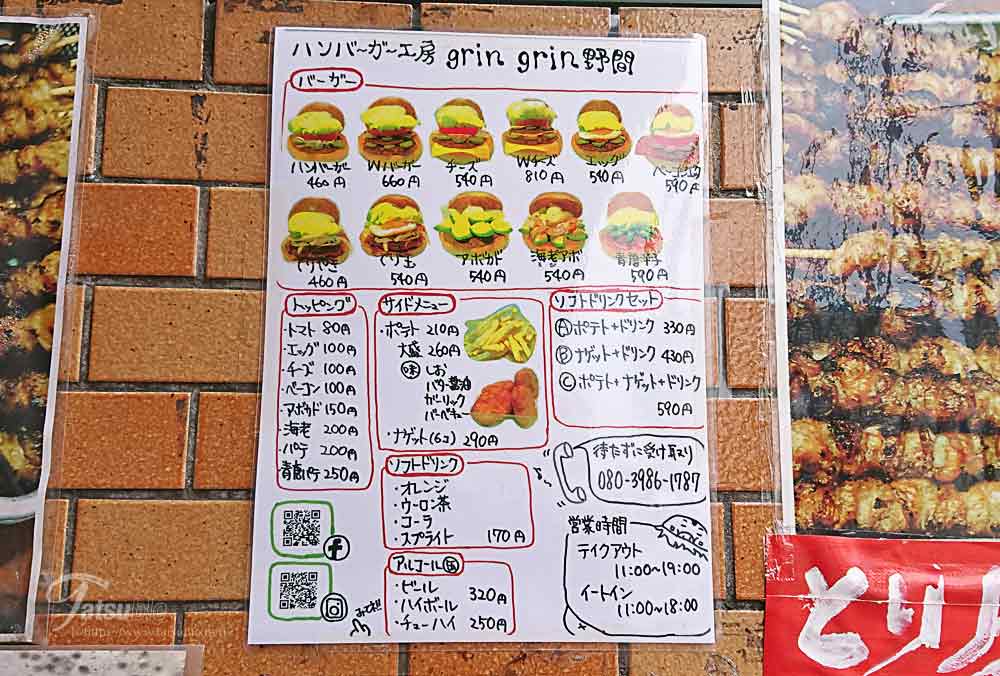 ハンバーガー工房 grin grin 野間
バーガー
ハンバーガー Wバーガー チーズ Wチーズ エッグ ベーコンエッグ
460円 660円 540円 810円 540円 590円
てりやき てり玉 アボカド 海老アボ 青唐辛子
460円 540円 540円 540円 590円
トッピング
・トマト 80円
・エッグ 100円
・チーズ 100円
・ベーコン 100円
・アボカド 150円
・海老 200円
・パテ 200円
青唐パテ 250円
サイドメニュー
・ポテト 210円
大盛 260円
味 しお
バター醤油
ガーリック
バーベキュー
・ナゲット(6コ) 290円
ソフトドリンクセット
Ⓐポテト+ドリンク 330円
Ⓑナゲット+ドリンク 430円
Ⓒポテト+ナゲット+ドリンク
590円
ソフトドリンク
・オレンジ
・ウーロン茶
・コーラ
・スプライト 170円
アルコール 缶
・ビール 320円
・ハイボール
・チューハイ 250円
待たずに受け取り
080-3986-1787
営業時間
テイクアウト
11:00~19:00
イートイン
11:00~18:00
みてね!!
Tatsu
とり